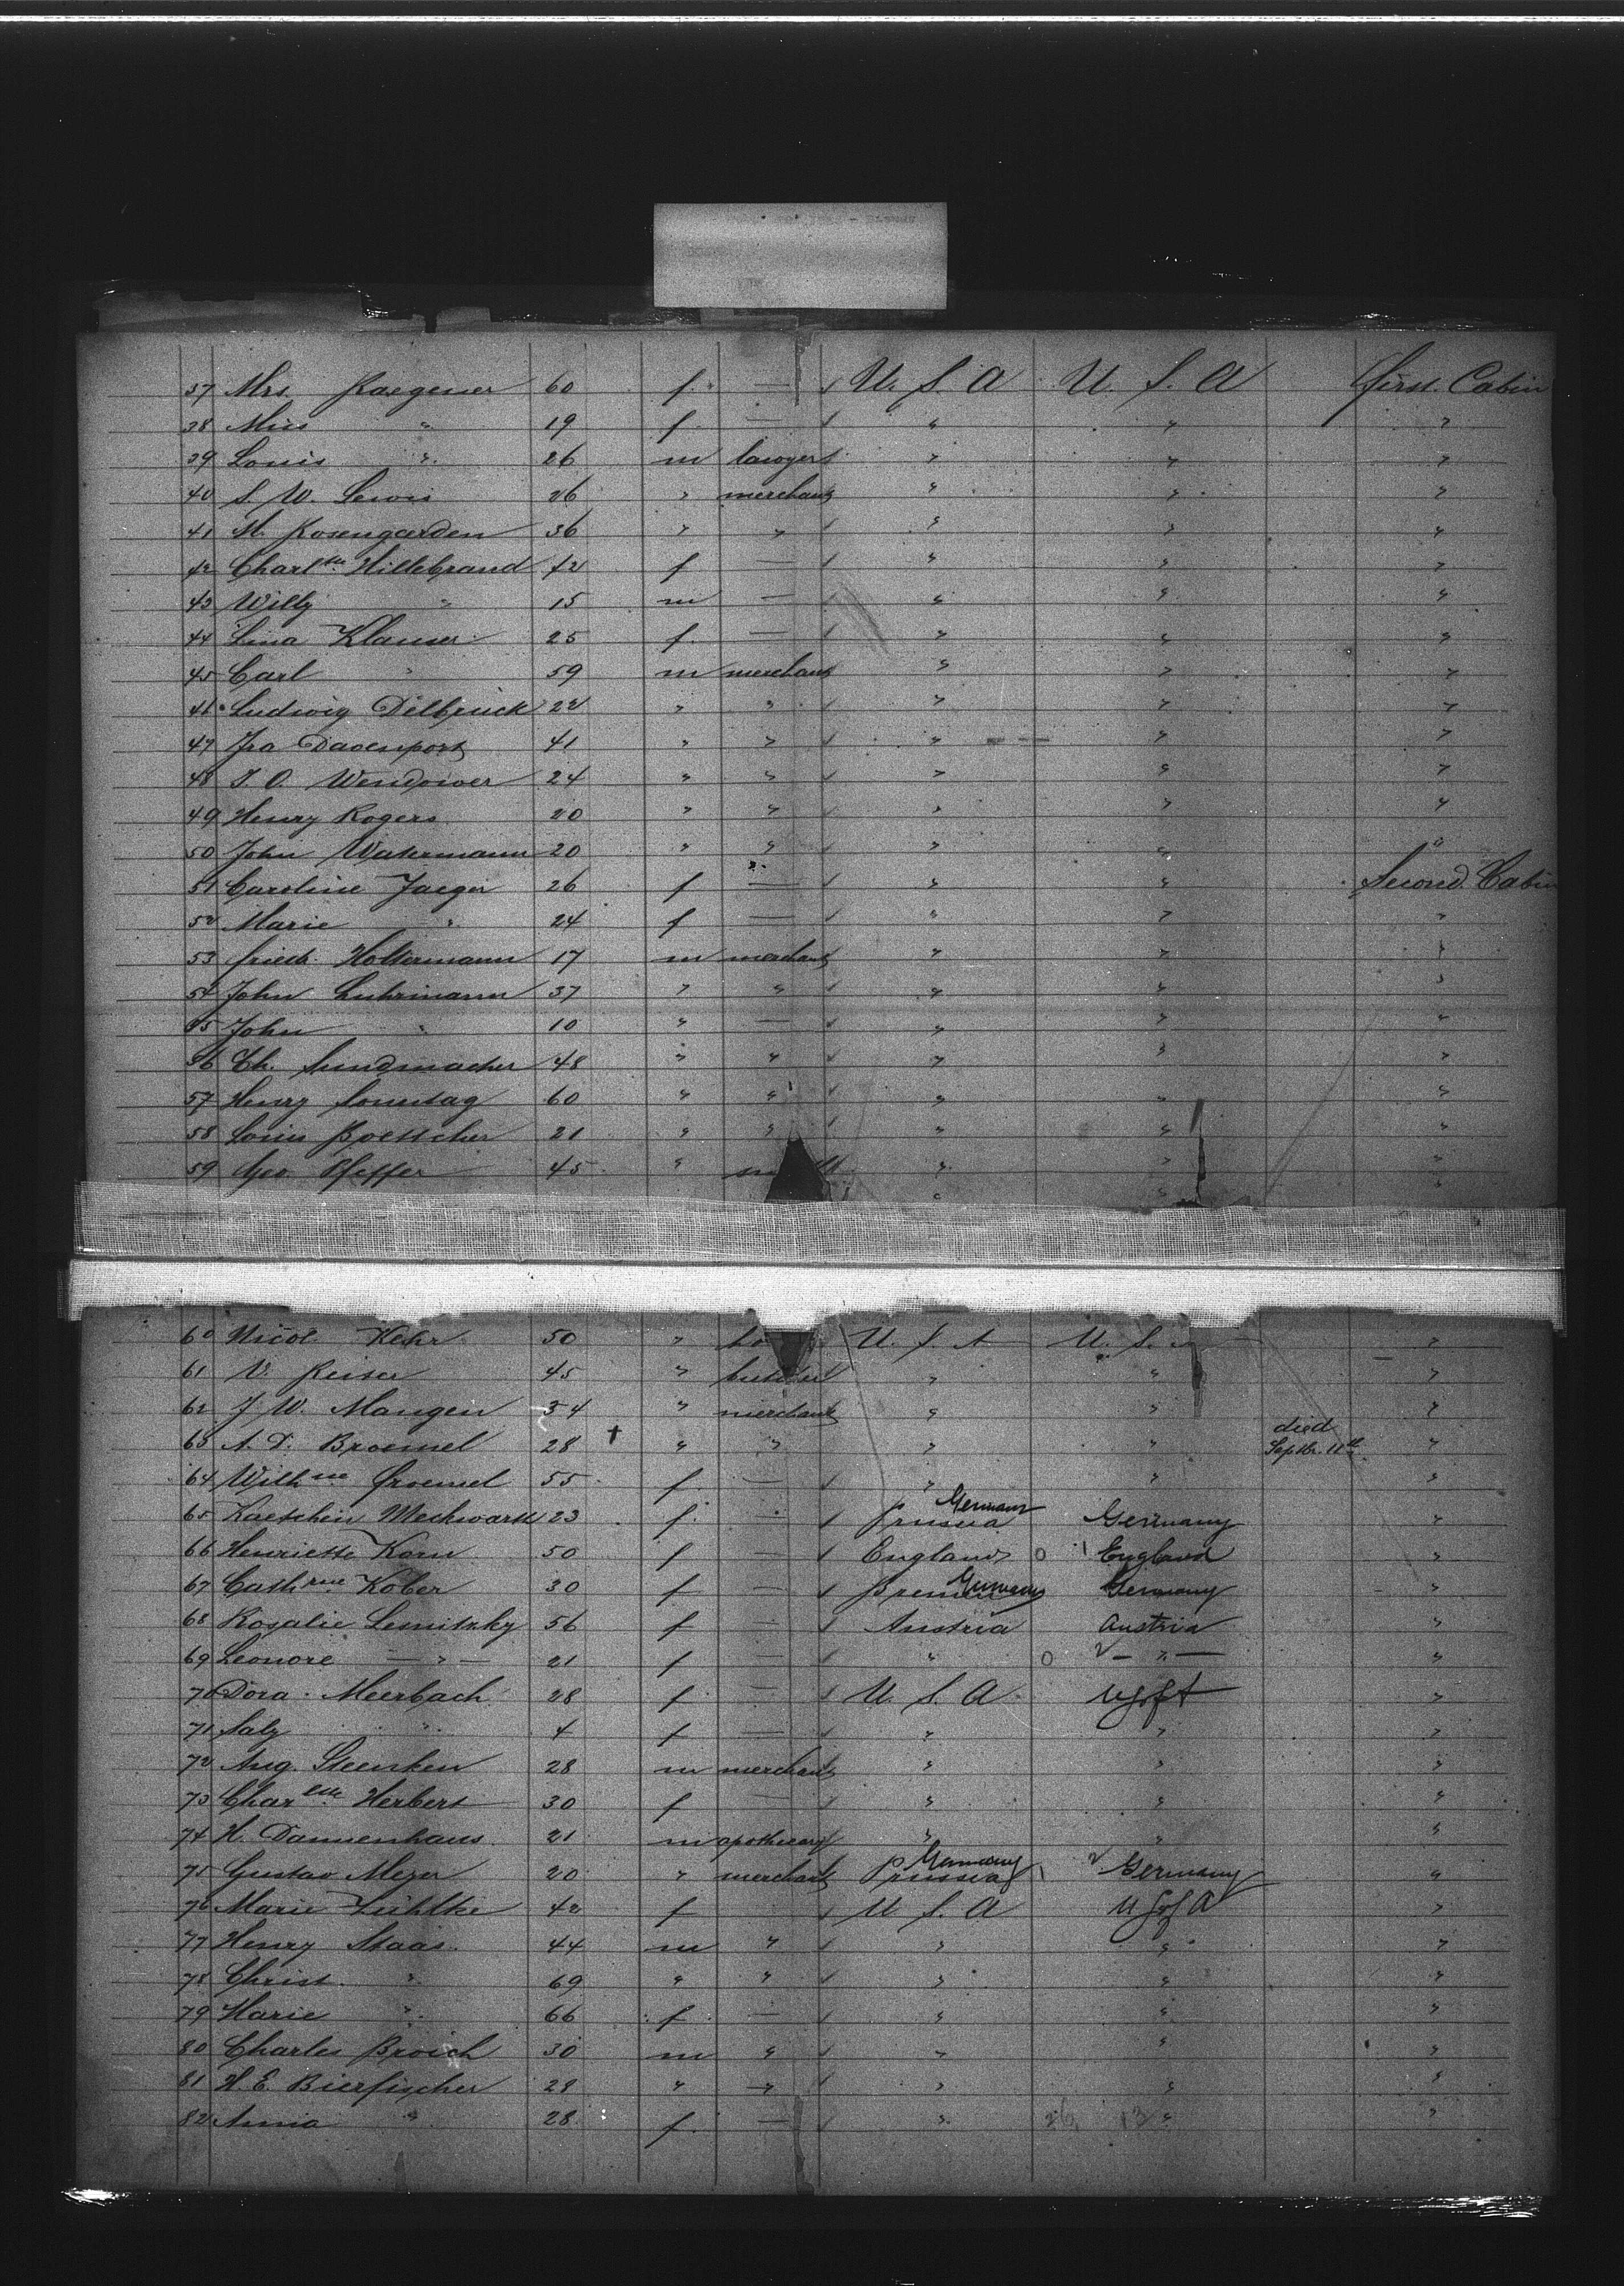 37 Mrs. Kaegener 60 f. — U. S. A U. S. A First Cabin
38 Miss " 19 f. — " " "
39 Louis " 26 m lawyer " " "
40 S. W. Lewis 26 " merchant " " "
41 M. Rosengarden 36 " " " " "
42 Charl tte Hillebrand 42 f — " " "
43 Willy " 15 m — " " "
44 Lina Klauser 25 f. — " " "
45 Carl " 59 m merchant " " "
46 Ludwig Delbrück 22 " " " " "
47 Ira Davenport 41 " " " " "
48 Wendower 24 " " " " "
49 Henry Rogers 20 " " " " "
50 John Watermann 20 " " " " "
51 Caroline Jaeger 26 f — " " Second Cabin
52 Marie " 24 f — " " "
53 Friedr. Holtermann 17 m merchant " " "
54 John Luhrmann 37 " " " " "
55 John " 10 " — " " "
56 Ch. Sundmacher 48 " " " " "
57 Henry Sonntag 60 " " " " "
58 Louis Boettcher 21 " " " " "
59 Geo. Pfeffer 45 " " " "
60 Nicol. Kehr 50 " U. S. A U. S. "
61 V. Reiser 45 " " " "
62 J. W. Mangen 34 " merchant " " "
63 A. D. Broemel 28 † " " " " died Septbr. 11th "
64 Wilh ne Broemel 55 f. — " " "
65 Kaetchen Meckwarth 23 f. Prussia Germany Germany "
66 Henriette Korn 50 f — England 0 1 England "
67 Cath rine Kober 30 f — Bremen Germany Germany "
68 Rosalie Lemitzky 56 f — Austria Austria "
69 Leonore — " — 21 f — " 0 2 — " — "
70 Dora Meerbach 28 f. — U. S. A. U S of A "
71 Saly " 4 f — " " "
72 Aug. Steenken 28 m merchant " " "
73 Char ltte Herbert 30 f — " " "
74 H. Dannenhaus 21 m apothecary " " "
75 Gustav Meyer 20 " merchant Prussia Germany 2 Germany "
76 Marie Lühlke 42 f U. S. A U S of A "
77 Henry Maas 44 m " " " "
78 Christ. " 69 " " " " "
79 Marie " 66 f. — " " "
80 Charles Broich 30 m " " " "
81 H. E. Bierfischer 29 " " " " "
82 Anna " 28 f. — " 26 13 " "